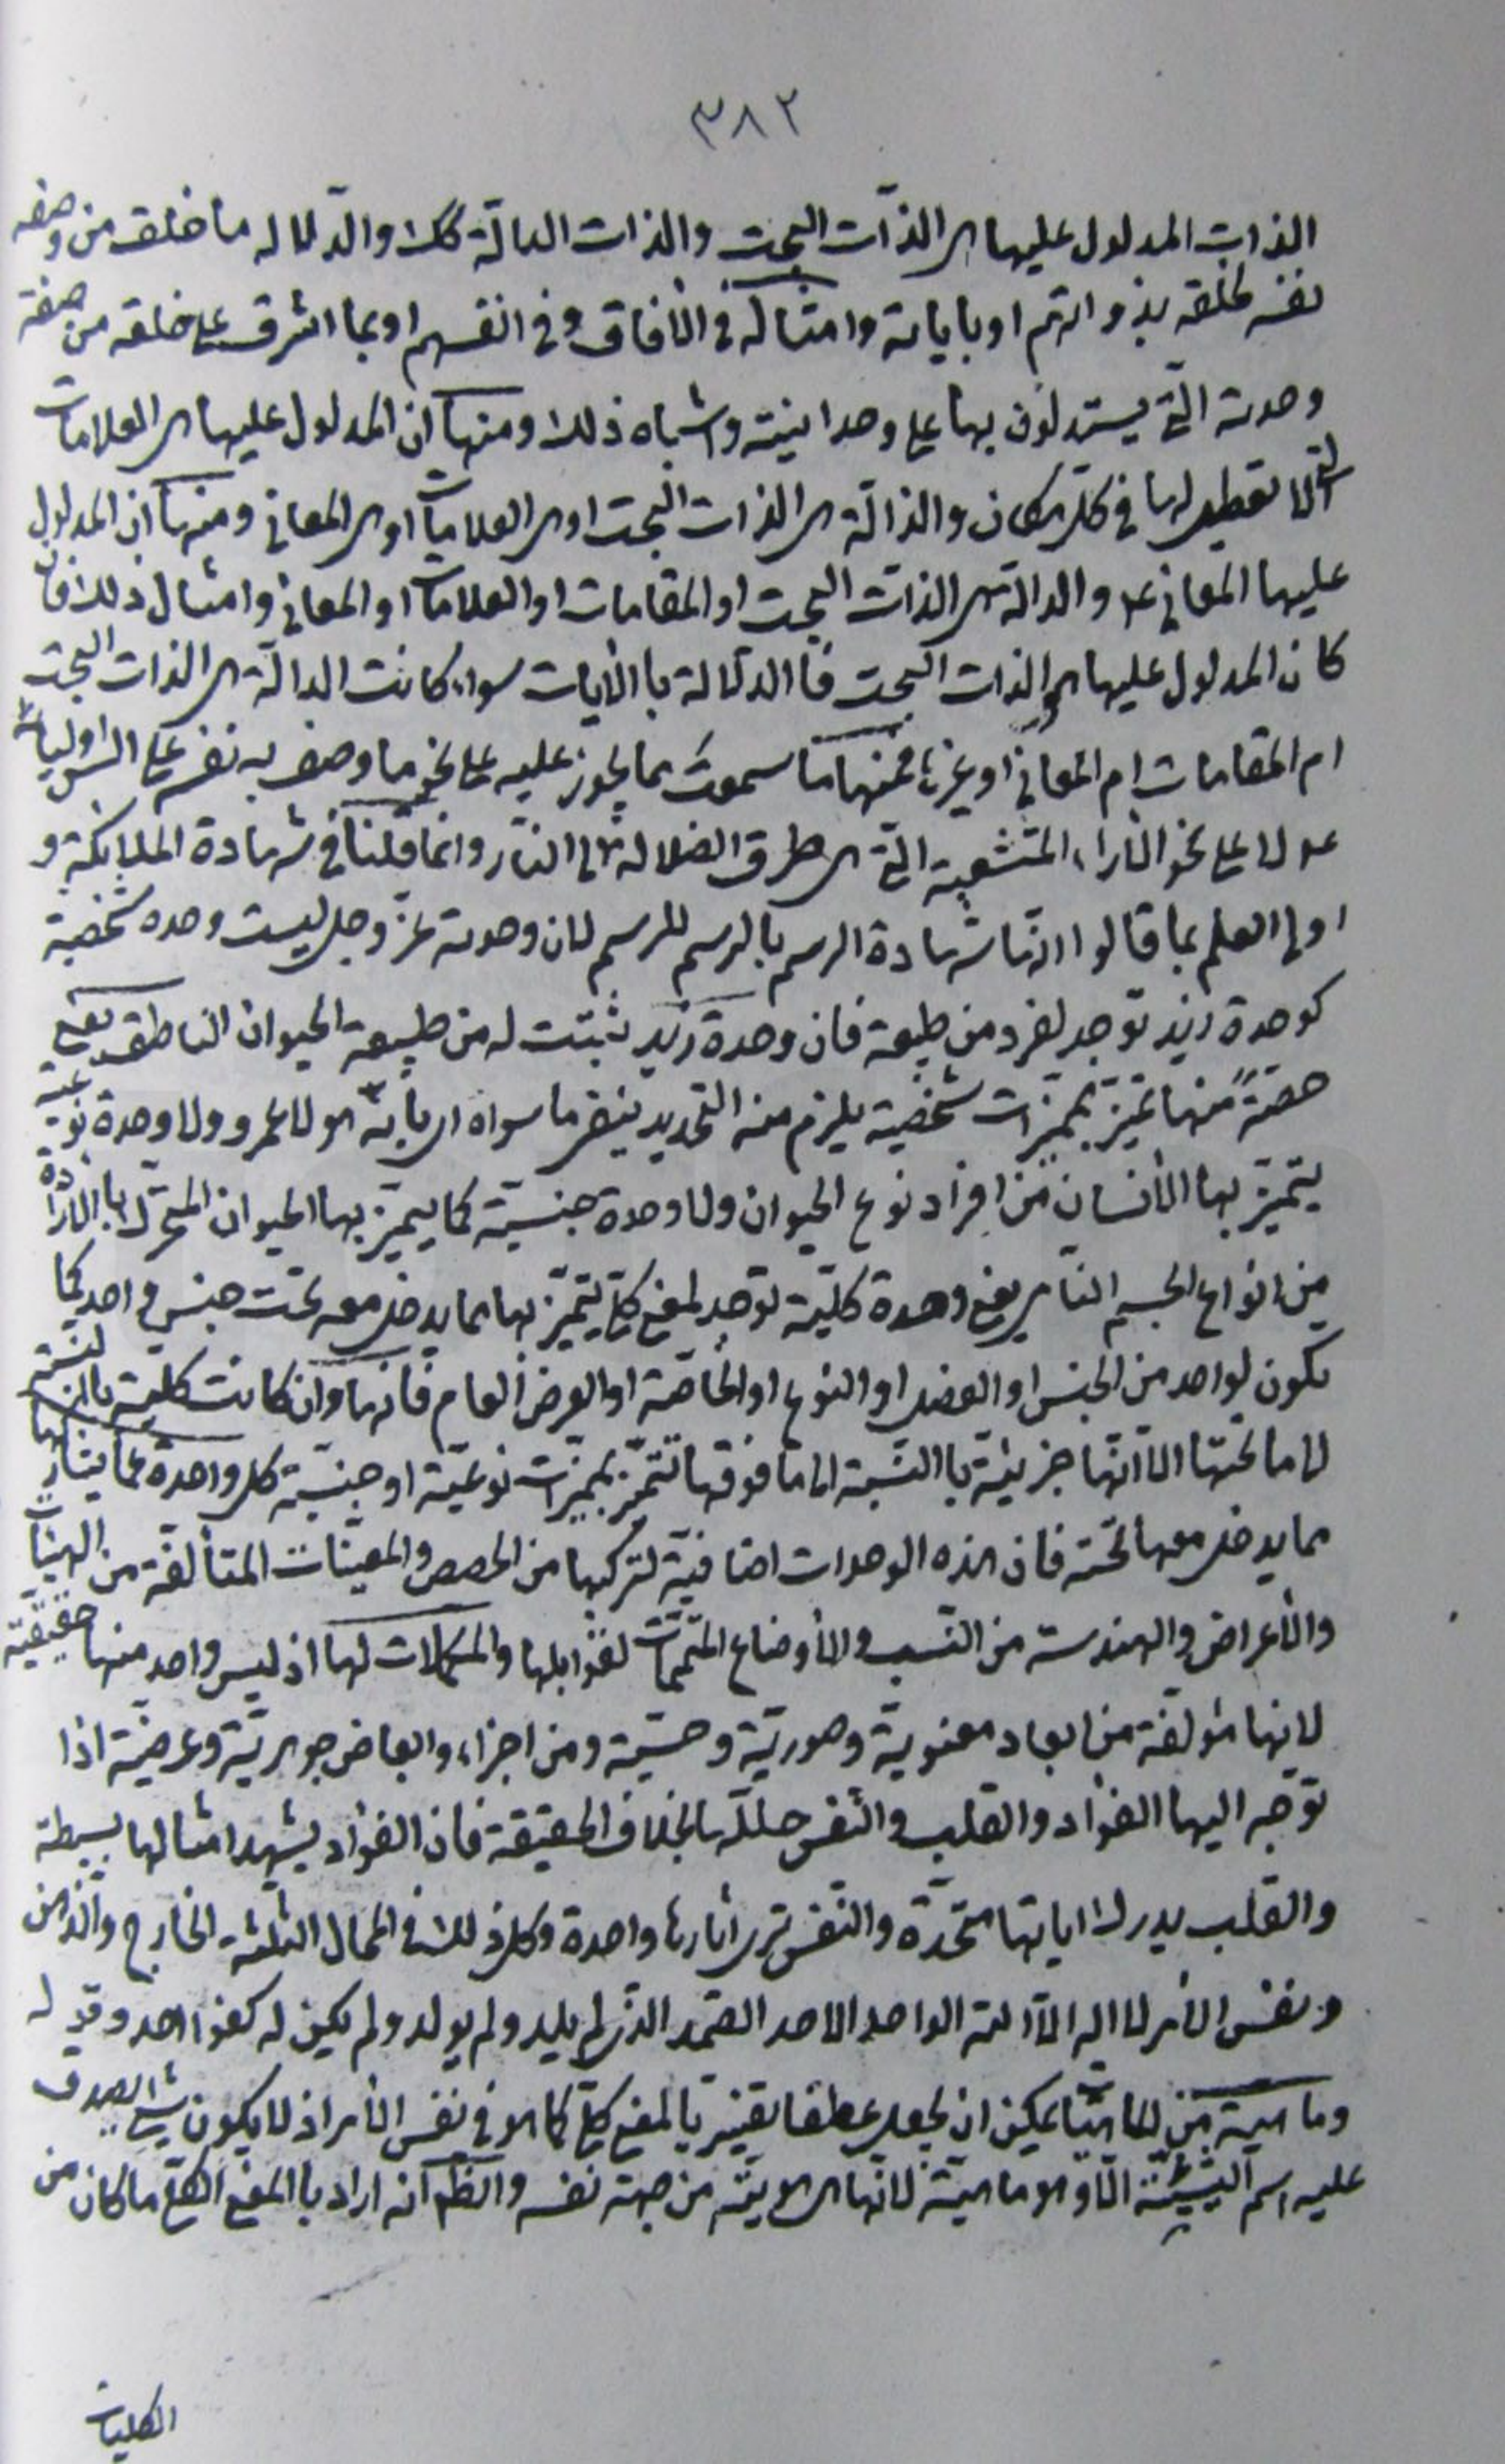 ٣٨٢
الذات المدلول عليها هى الذات البحت والذات الدالة كك والدلالة ما خلق من وصفه
نفسه لخلقه بذواتهم او باياته وامثاله فى الأفاق وفى انفسهم او بما اشرق على خلقه من صفة
وحدته التى يستدلون بها على وحدانيته واشباه ذلك ومنها ان المدلول عليها هى العلامات
التى لا تعطيل لها فى كل مكان والدالة هى الذات البحت او هى العلامات او هى المعانى ومنها ان المدلول
عليها المعانى والدالة هى الذات البحت او المقامات او العلامات او المعانى وامثال ذلك فان
كان المدلول عليها هى الذات البحت فاالدلالة باالأيات سواء كانت الدالة هى الذات البحت
ام المقامات ام المعانى او غيرها فمنها ما سموت بما يجوز عليه على نحو ما وصف به نفسه على السن اوليائه
لا على نحو الأراء المتشعبة التى هى طرق الضلالة الى النار وانما قلنا فى شهادة الملائكة و
اولى العلم بما قالوا انها شهادة الرسم بالرسم للرسم لان وحدته عز وجل ليست وحدة شخصية
كوحدة زيد توجد لفرد من طبيعة فان وحدة زيد ثبتت له من طبيعة الحيوان الناطق يعنى
حصة منها تميز بمميزات شخصية يلزم منه التحديد بنفى ما سواه اى بانه هو لا عمرو ولا وحدة نوعية
يتميز بها الأنسان من افراد نوع الحيوان ولا وحدة جنسية كما يميز بها الحيوان المتحرك باالارادة
من انواع الجسم النامى يعنى وحدة كلية توجد لمعنى كلى يتميز بها مما يدخل معه تحت جنس واحد كما
يكون لواحد من الجنس او الفصل او النوع او الخاصة او العرض العام فانها وان كانت كلية باالنسبة
لما تحتها الا انها جزئية باالنسبة الى ما فوقها تتميز بمميزات نوعية او جنسية كل واحدة عما يشاركها
مما يدخل معها تحته فان هذه الوحدات اضافية لتركبها من الحصص والمعينات المتألفة من الهيئات
والأعراض والهندسة من النسب والأوضاع المتممات لقوابلها والمكملات لها اذ ليس واحد منها حقيقية
لانها مؤلفة من ابعاد معنوية وصورية وحسية ومن اجزاء وابعاض جوهرية وعرضية اذا
توجه اليها الفؤاد والقلب والنفس حللها بخلاف الحقيقة فان الفؤاد يشهد امثالها بسيطة
والقلب يدرك اياتها متحدة والنفس ترى اثارها واحدة وكل ذلك فى المحال الثلثة الخارج والذهن
ونفس الأمر لا اله الا الله الواحد الاحد الصمد الذى لم يلد ولم يولد ولم يكن له كفوا احد وقوله
وماهية من الماهيات يمكن ان يجعل عطفا تفسيريا لمعنى كلى كما هو فى نفس الأمر اذ لا يكون شئ يصدق
عليه اسم الشيئية الا وهو ماهية لانها هى هويته من جهة نفسه والظم انه اراد باالمعنى الكلى ما كان من
الكليات